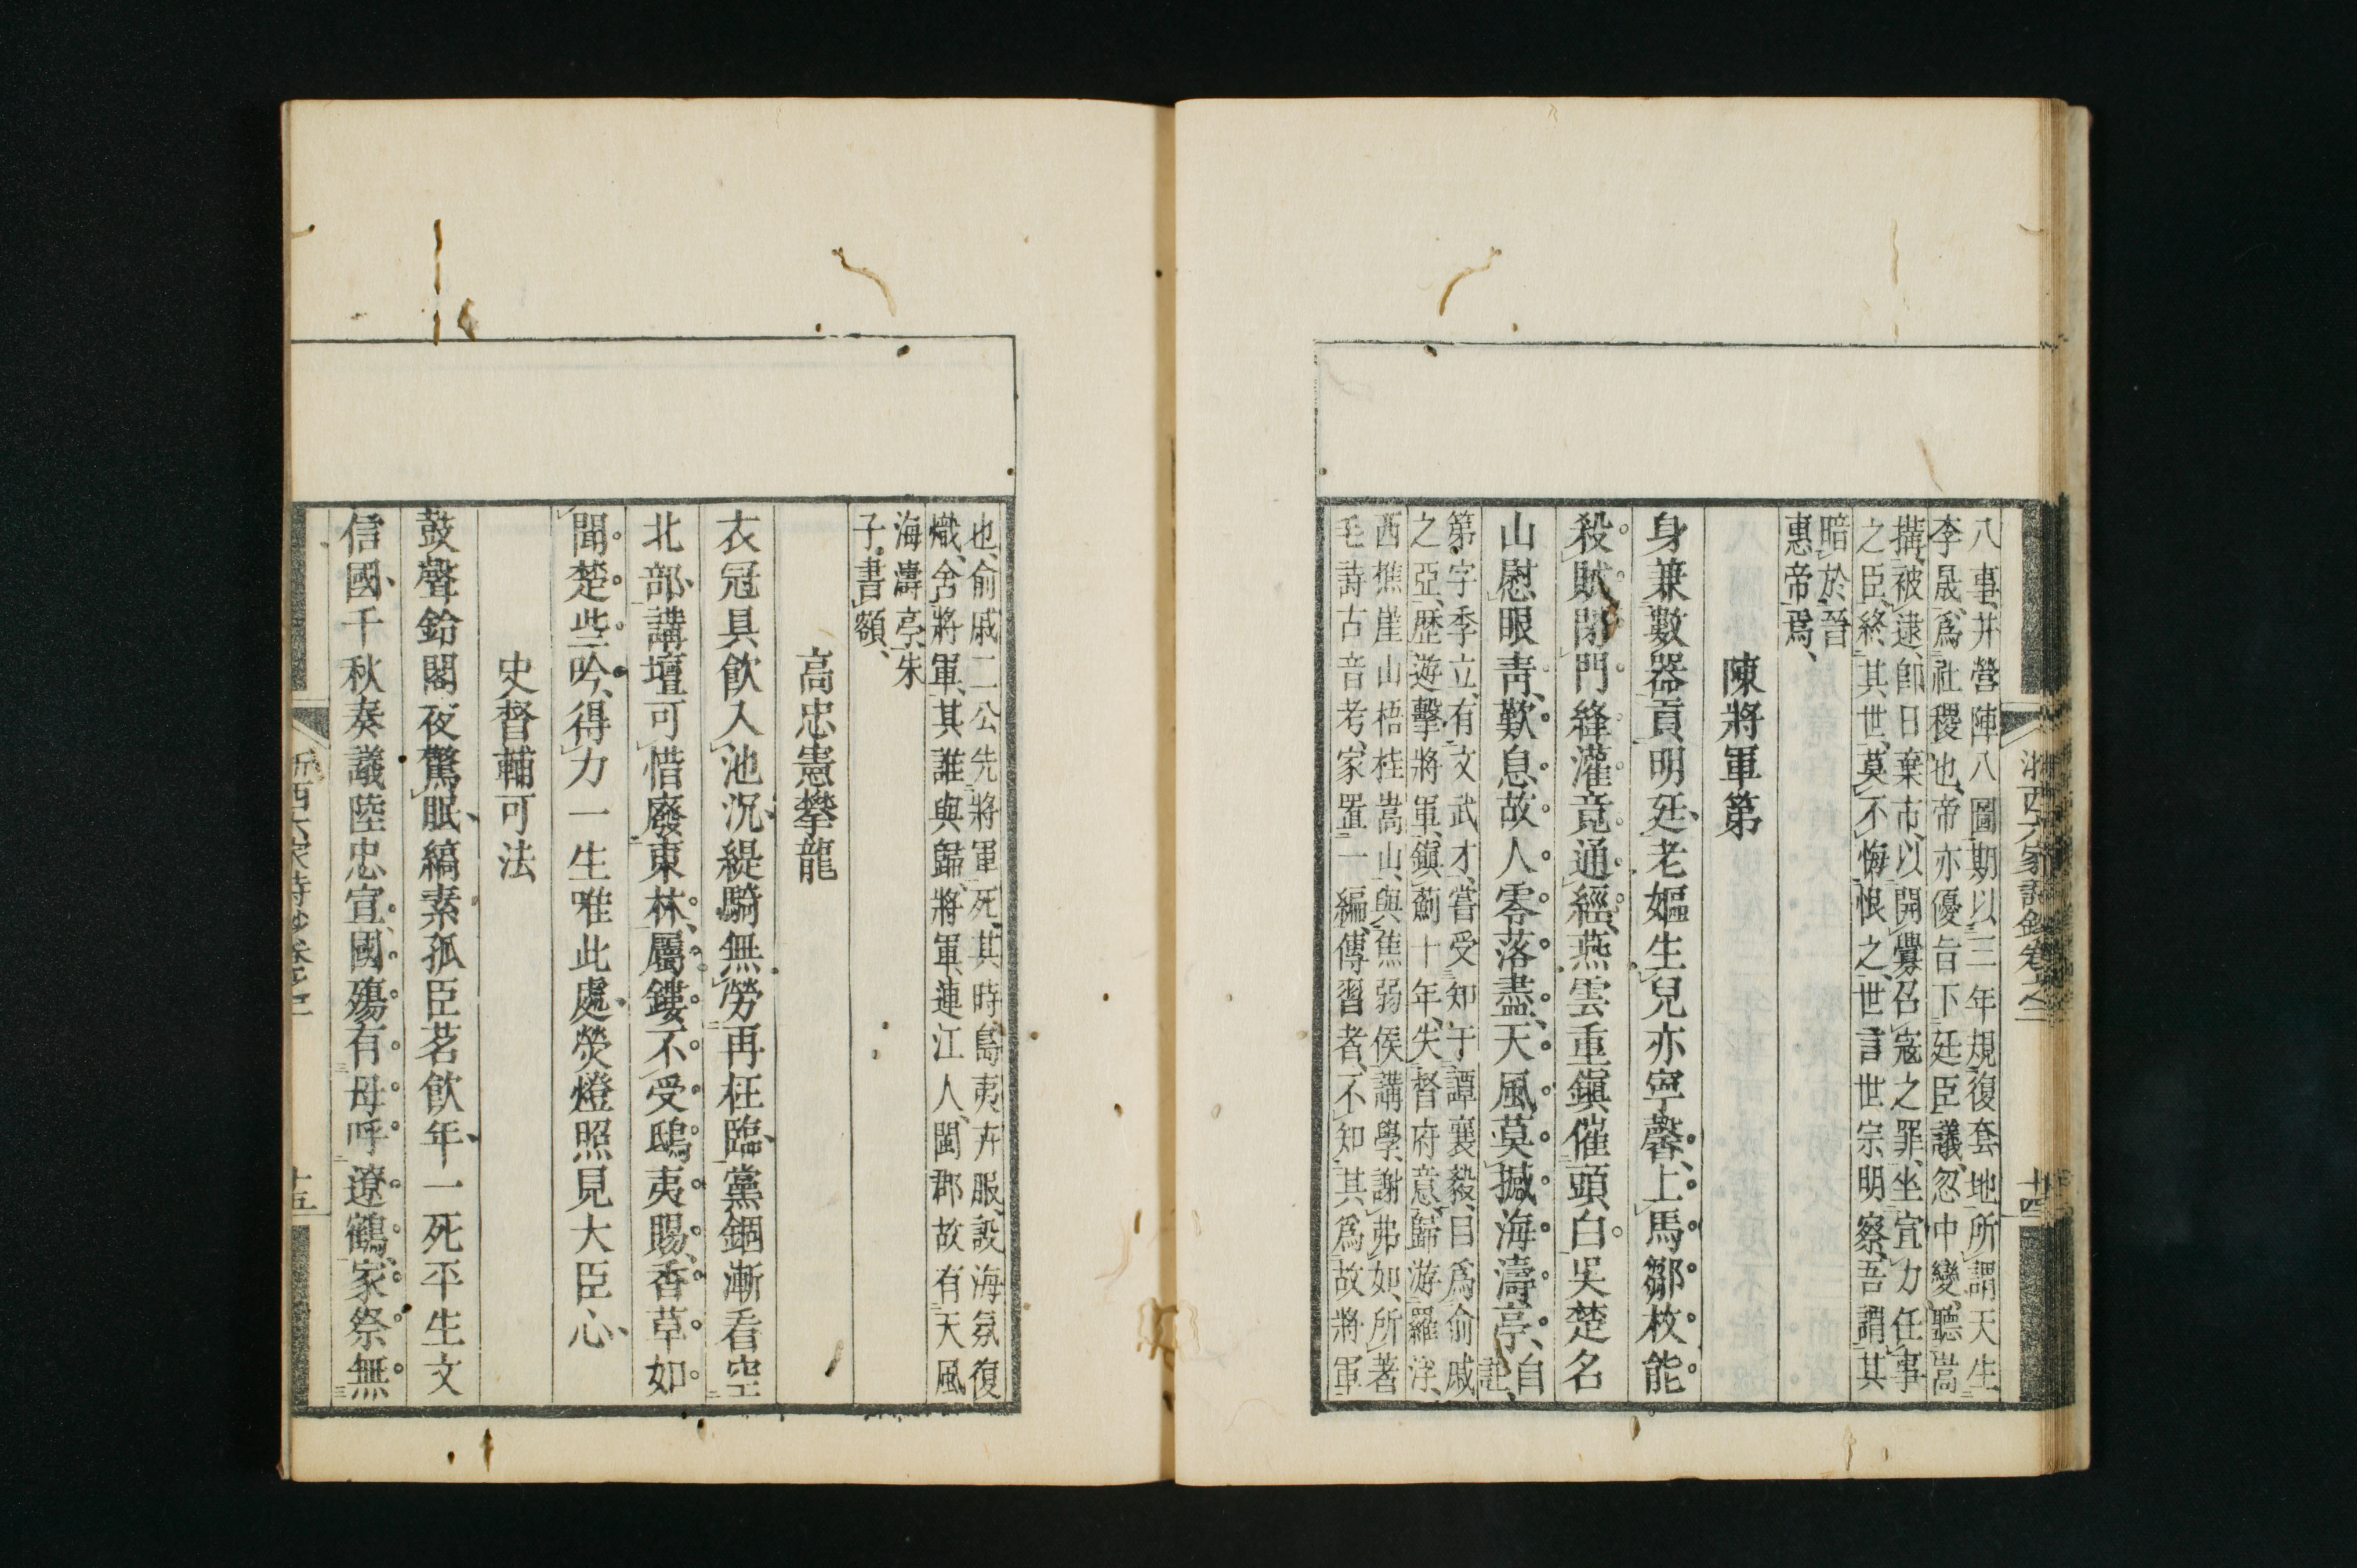 浙西六家詩鈔卷之二
十四
八事、并營陣八圖、期以三年規復套地、所謂天生
李晟、爲社稷也、帝亦優旨下廷臣議、忽中變、聽嵩
搆、被逮、卽日棄市、以開釁召寇之罪、坐宜力任事
之臣、終其世、莫不悔恨之、世言世宗明察、吾謂其
暗於晉
惠帝焉、
陳將軍第
身兼數器貢明廷、老嫗生兒亦寧馨、上馬鄒枚能
殺賊、閉門絳灌竟通經、燕雲重鎭催頭白、吳楚名
山慰眼靑、歎息故人零落盡、天風莫撼海濤亭、自註、
第字季立、有文武才、嘗受知于譚襄毅、目爲俞戚
之亞、歷遊擊將軍、鎭薊十年、失督府意、歸游羅浮、
西樵崖山梧桂嵩山、與焦弱侯講學、謝弗如、所著
毛詩古音考、家置一編、傳習者、不知其爲故將軍
也、俞戚二公先將軍死、其時島夷卉服、設海氛復
熾、舍將軍、其誰與歸、將軍、連江人、閩郡故有天風
海濤亭、朱
子書額、
高忠憲攀龍
衣冠具飮入池沉、緹騎無勞再枉臨、黨錮漸看空
北部、講壇可惜廢東林、屬鏤不受鴟夷賜、香草如
聞楚些吟、得力一生唯此處、熒燈照見大臣心、
史督輔可法
鼓聲鈴閣夜驚眠、縞素孤臣茗飮年、一死平生文
信國、千秋奏議陸忠宣、國殤有母呼遼鶴、家祭無
西六家詩鈔卷之二
十五